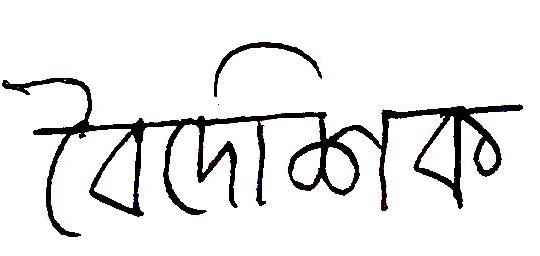 বৈদেশিক